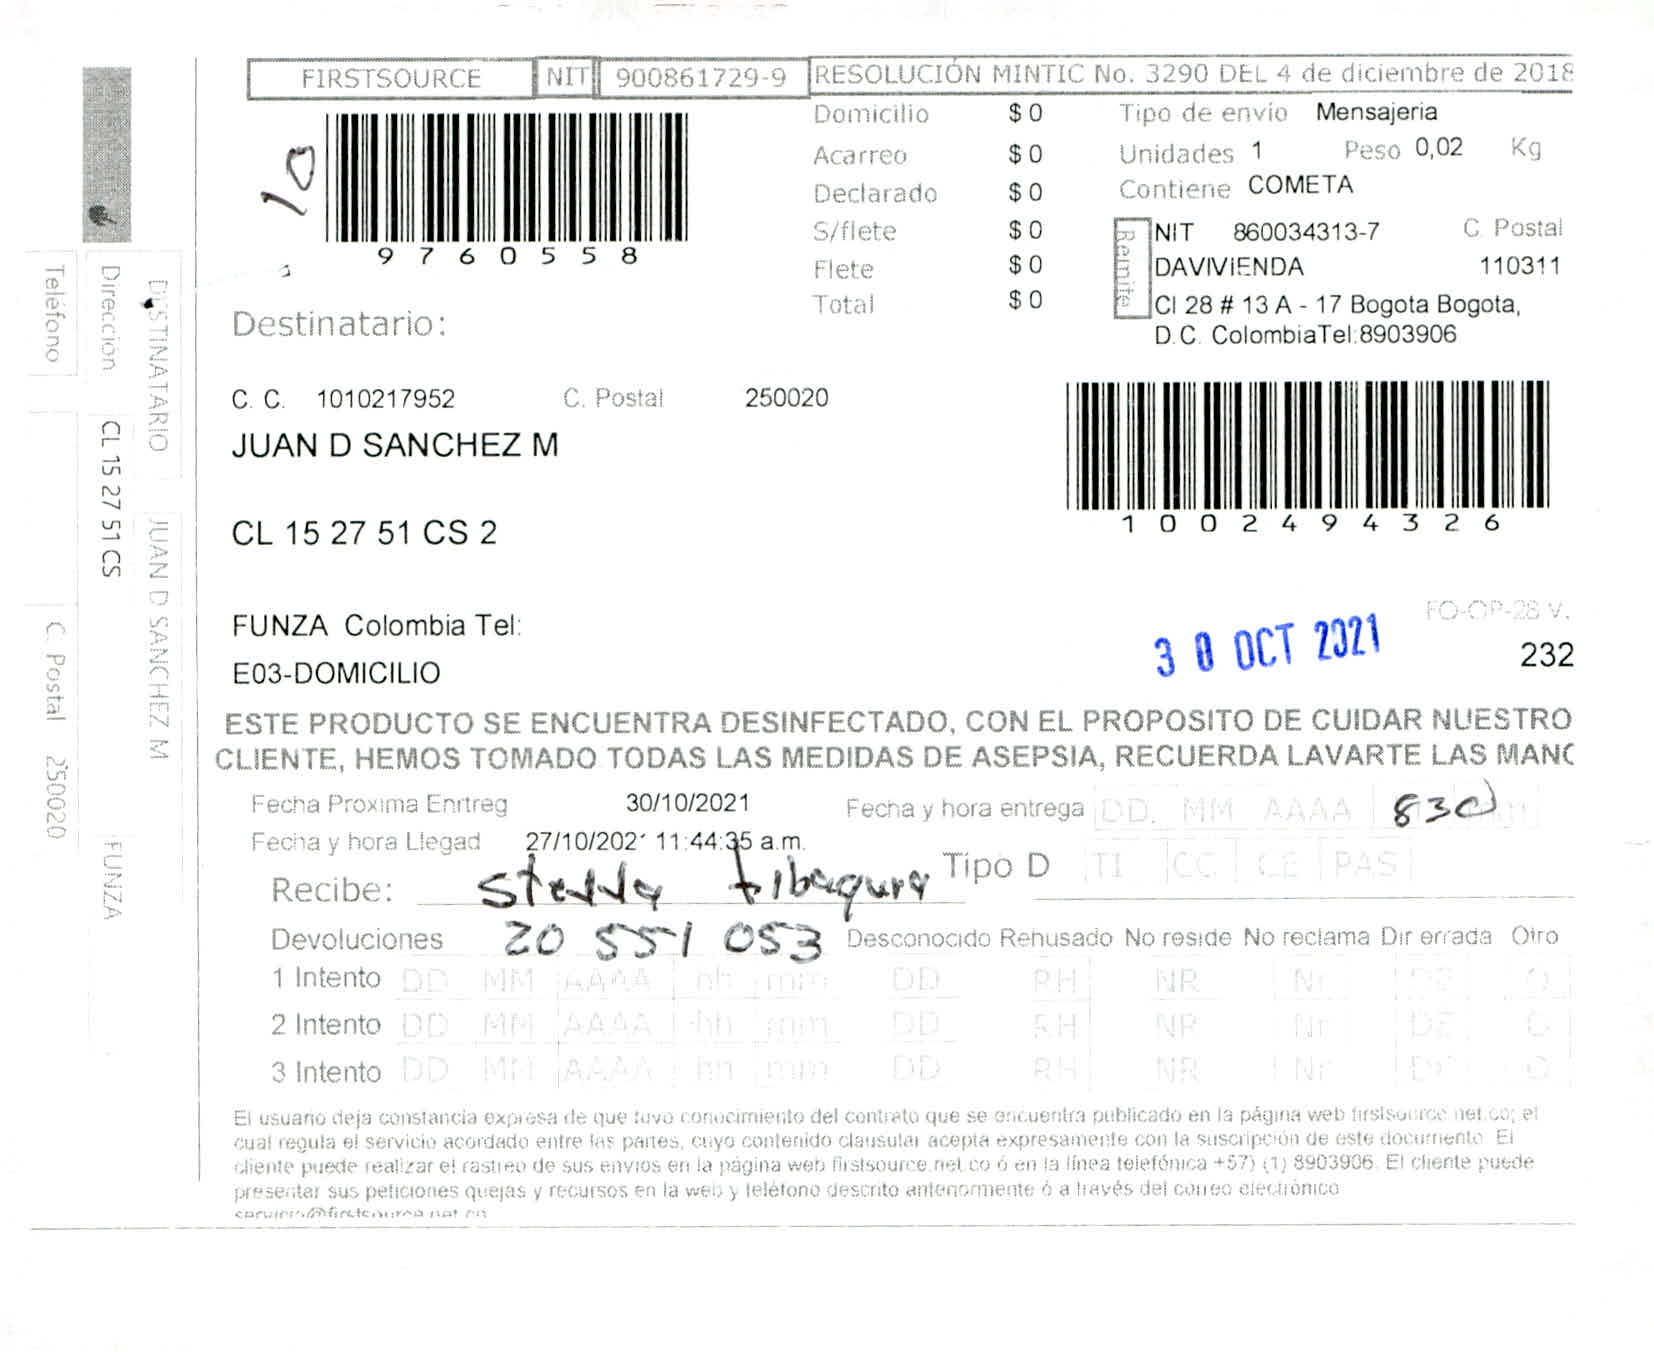 FIRSTSOURCE NIT 900861729-9 RESOLUCIÓN MINTIC No. 3290 DEL 4 de diciembre de 2018
10
9760558
Domicilio $ 0
Acarreo $ 0
Declarado $ 0
S/flete $ 0
Flete $ 0
Total $ 0
Tipo de envío Mensajeria
Unidades 1 Peso 0,02 Kg
Contiene COMETA
Remite
NIT 860034313-7 C. Postal
DAVIVIENDA 110311
Cl 28 # 13 A - 17 Bogota Bogota,
D.C. ColombiaTel:8903906
Destinatario:
C. C. 1010217952 C. Postal 250020
JUAN D SANCHEZ M
1002494326
CL 15 27 51 CS 2
FUNZA Colombia Tel:
E03-DOMICILIO
30 OCT 2021
FO-OP-28 V.
232
ESTE PRODUCTO SE ENCUENTRA DESINFECTADO, CON EL PROPOSITO DE CUIDAR NUESTRO
CLIENTE, HEMOS TOMADO TODAS LAS MEDIDAS DE ASEPSIA, RECUERDA LAVARTE LAS MANO
Fecha Proxima Enrtreg 30/10/2021 Fecha y hora entrega DD. MM AAAA 830
Fecha y hora Llegad 27/10/2021 11:44:35 a.m.
Recibe: Stella tibaquira Tipo D TI CC CE PAS
20 551 053
Devoluciones Desconocido Rehusado No reside No reclama Dir errada Otro
1 Intento DD MM AAAA hh mm DD RH NR Nr DE O
2 Intento DD MM AAAA hh mm DD RH NR Nr DE O
3 Intento DD MM AAAA hh mm DD RH NR Nr DE O
El usuario deja constancia expresa de que tuvo conocimiento del contrato que se encuentra publicado en la página web firstsource.net.co; el
cual regula el servicio acordado entre las partes, cuyo contenido clausular acepta expresamente con la suscripción de este documento. El
cliente puede realizar el rastreo de sus envios en la página web firstsource.net.co ó en la línea telefónica +57) (1) 8903906. El cliente puede
presentar sus peticiones quejas y recursos en la web y teléfono descrito anteriormente ó a través del correo electrónico
servicio@firstsource.net.co
DESTINATARIO JUAN D SANCHEZ M
Direccion CL 15 27 51 CS FUNZA
Teléfono C Postal 250020